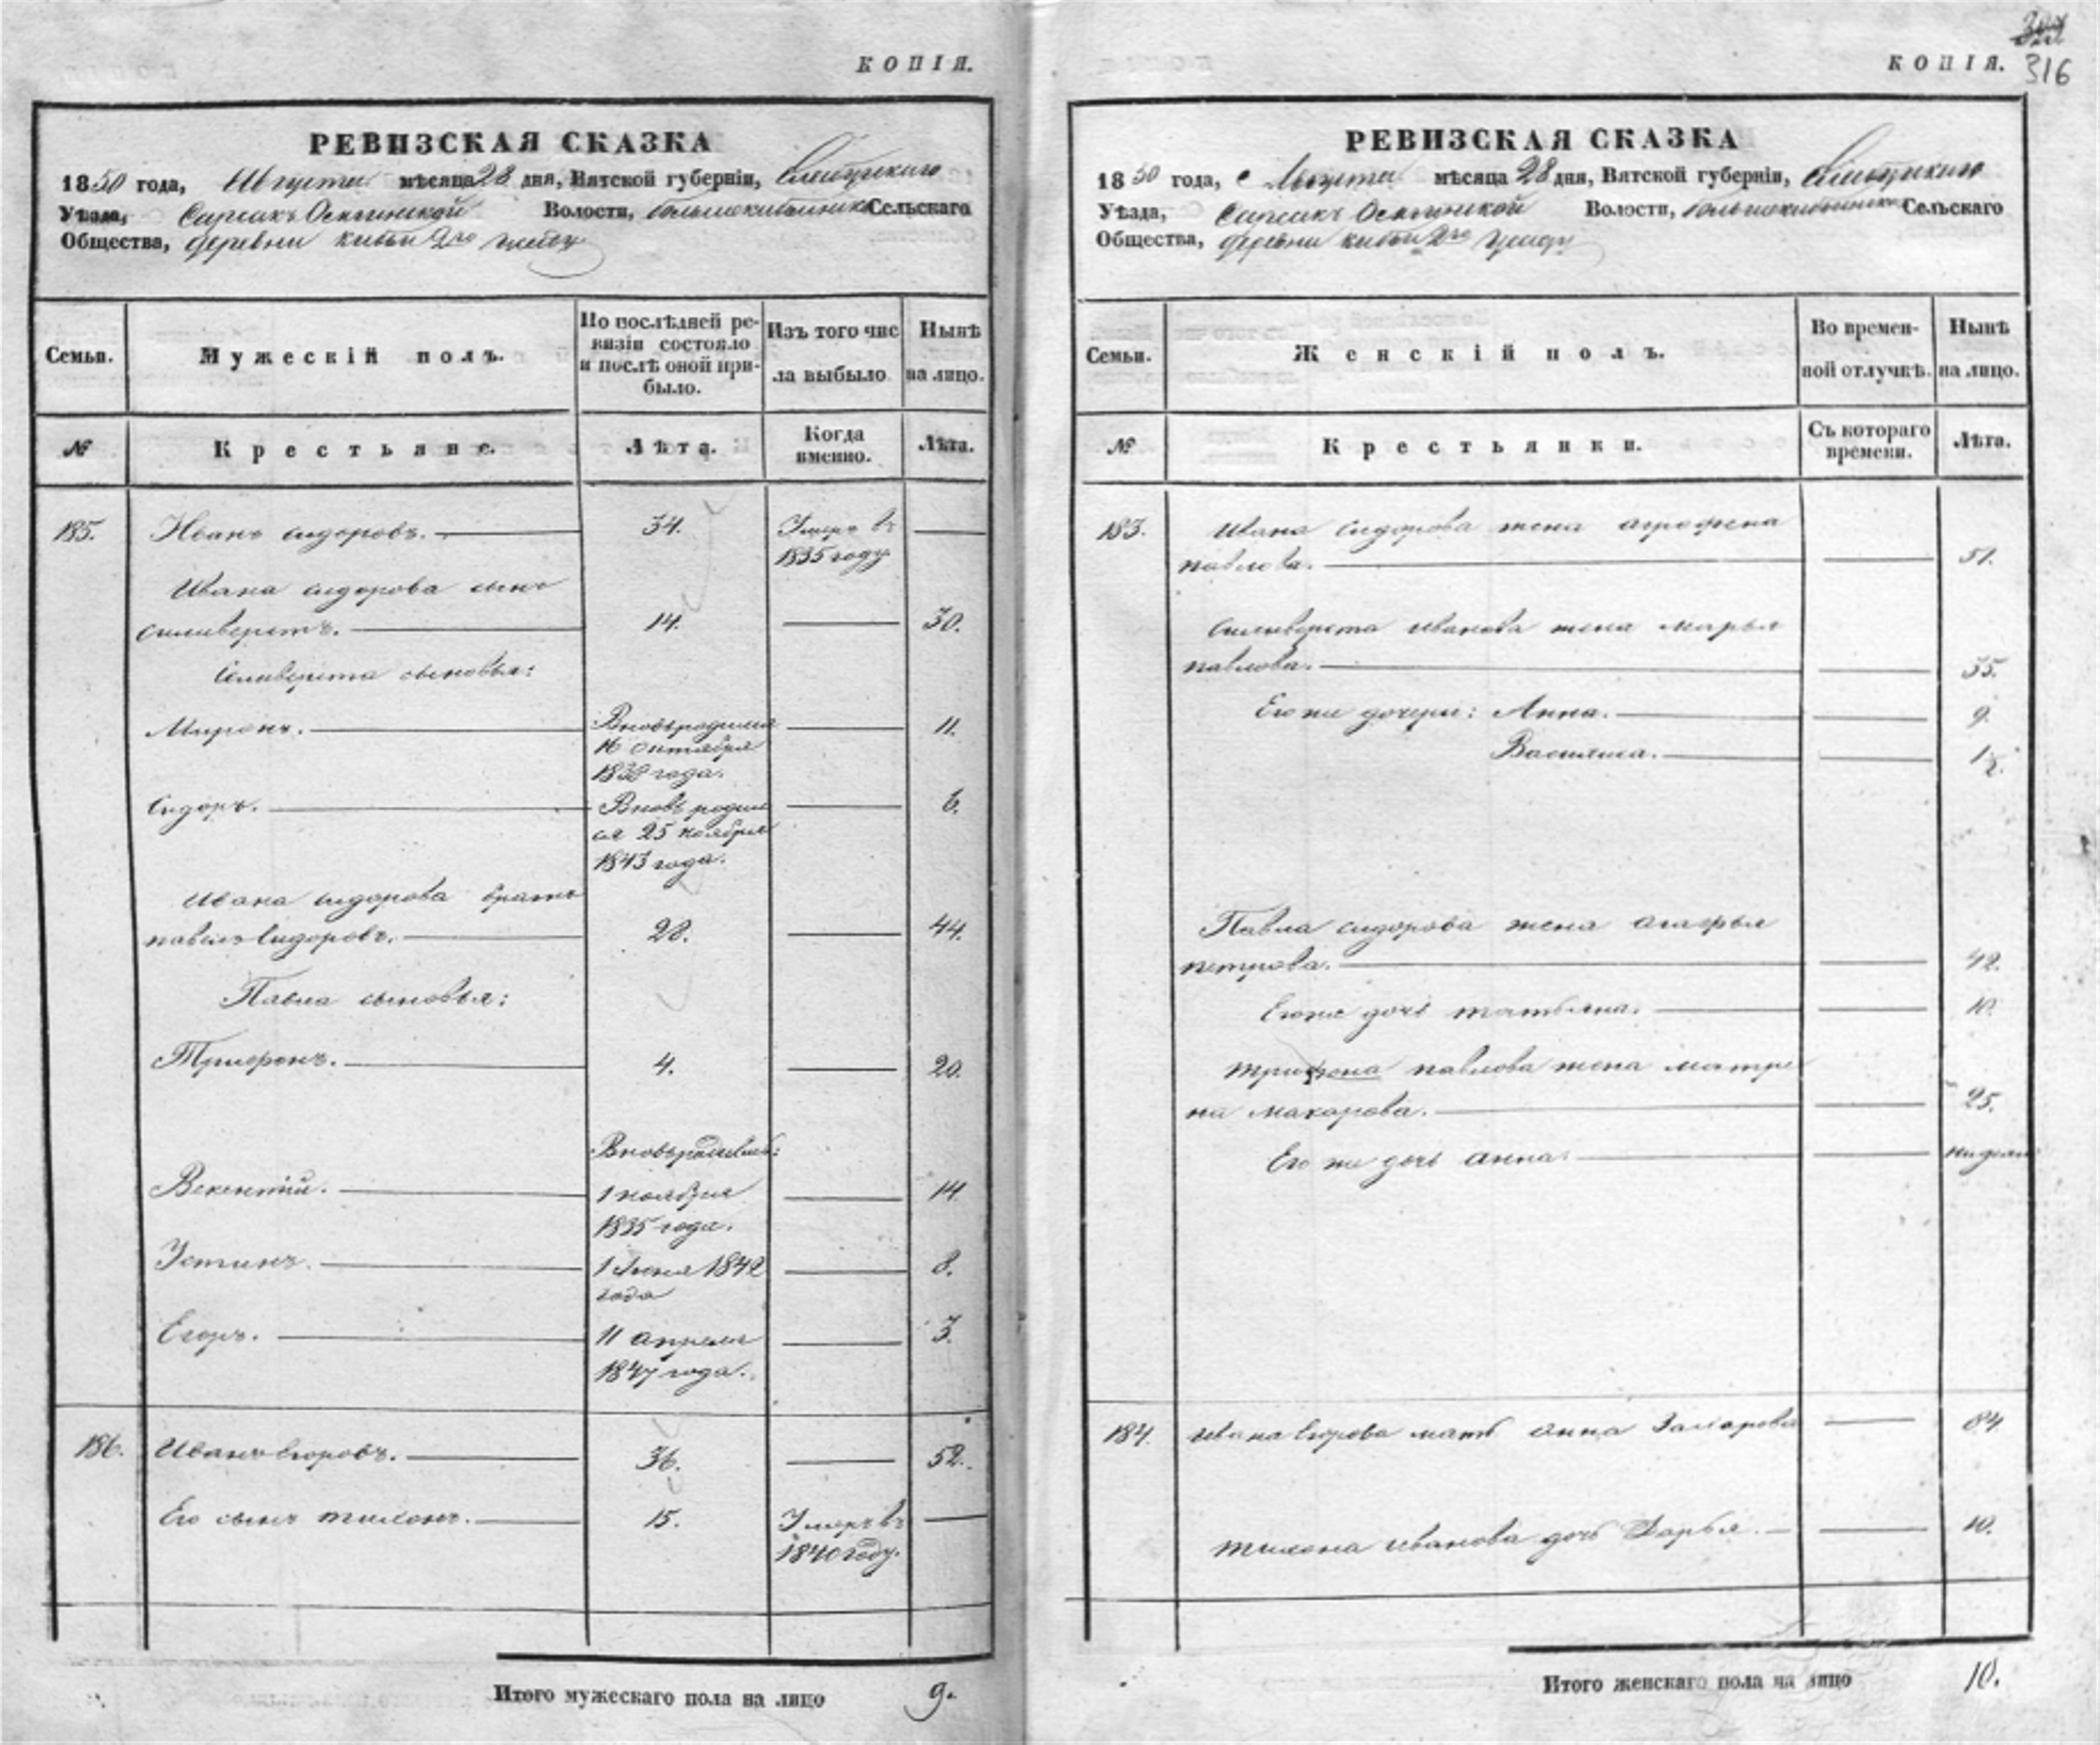 КОПІЯ.
РЕВИЗСКАЯ СКАЗКА
1850 года, Августа мѣсяца 28 дня, Вятской губерніи, Елабужского
Уѣзда, Сарсакъ Омгинской Волости, Сельскаго
Общества, деревни кибьи 2го
Семьи.
Мужескій полъ.
По послѣдней ре-
визіи состояло
и послѣ оной при-
было.
Изъ того чис
ла выбыло
Нынѣ
на лицо.
№
Крестьяне.
Лѣта.
Когда
именно.
Лѣта.
185. Иванъ сидоровъ. 34. Умеръ въ
1835 году
Ивана сидорова сынъ
силиверстъ. 14. 30.
Селиверста сыновья:
Миронъ. Вновьродился 11.
16 октября
1838 года.
Сидоръ. Вновь родил 6.
ся 25 ноября
1843 года.
Ивана сидорова братъ
павелъ Сидоровъ. 28. 44.
Павла сыновья:
Трифонъ. 4. 20.
Вновьродились:
Викентій. 1 ноября 14.
1835 года.
Устинъ. 1 Июня 1842 8.
года
Егоръ. 11 апреля 3.
1847 года.
186. Иванъ Егоровъ. 36. 52.
Его сынъ тихонъ. 15. Умеръ въ
1840 году.
Итого мужескаго пола на лицо 9.
КОПІЯ. 316
РЕВИЗСКАЯ СКАЗКА
1850 года, Августа мѣсяца 28 дня, Вятской губерніи, Елабужского
Уѣзда, Сарсакъ Омгинской Волости, Сельскаго
Общества, деревни кибьи 2го
Семьи.
Женскій полъ.
Во времен-
ной отлучкѣ.
Нынѣ
на лицо.
№
Крестьянки.
Съ котораго
времени.
Лѣта.
183. Ивана Сидорова жена агрофена
павлова. 51.
Силиверста иванова жена марья
павлова. 35.
Его же дочери: Анна. 9.
Василиса. 1/2.
Павла сидорова жена агафья
петрова. 42.
Его же дочь татьяна. 10.
трифона павлова жена матре
на макарова. 25.
Его же дочь анна. недели
184. Ивана Егорова мать анна Захарова 84
тихона иванова дочь Дарья. 10.
Итого женскаго пола на лицо 10.